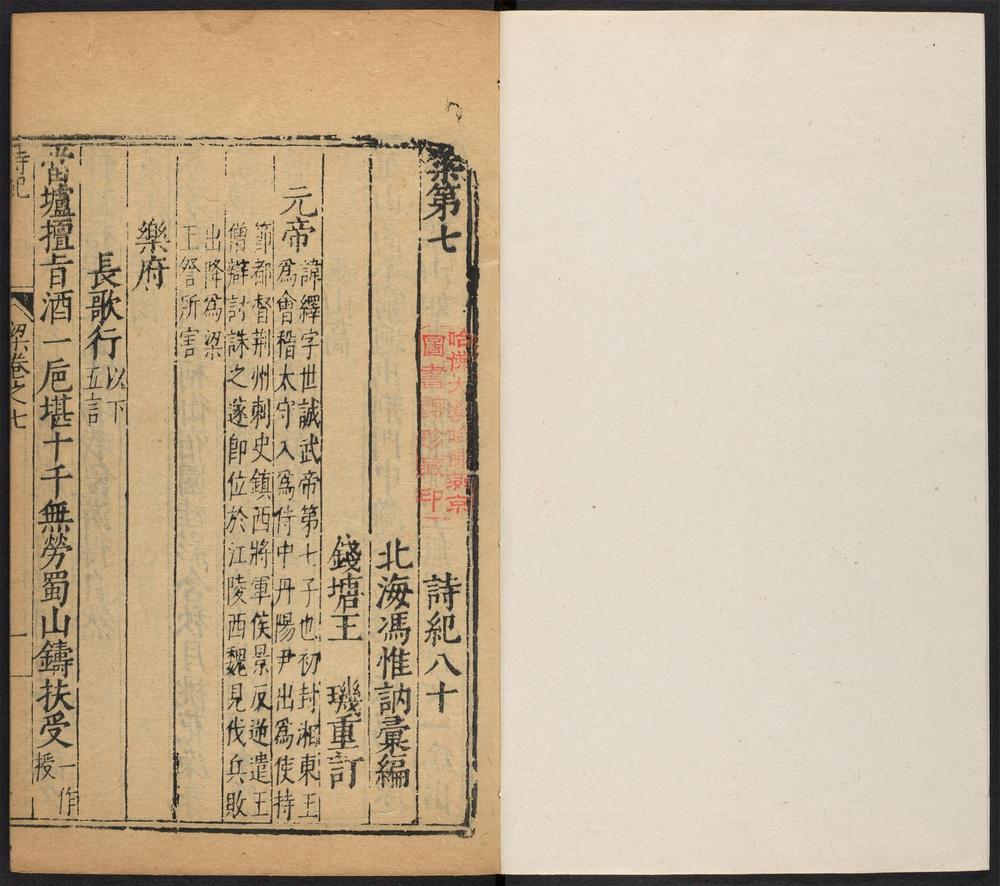 梁第七　詩紀八十
哈佛大學哈佛燕京
圖書館珍藏印
北海馮惟訥彙編
錢塘王　璣重訂
元帝
諱繹字世誠武帝第七子也初封湘東王
爲會稽太守入爲侍中丹陽尹出爲使持
節都督荆州刺史鎮西將軍侯景反逆遣王
僧辯討誅之遂卽位於江陵西魏見伐兵敗
出降爲梁
王詧所害
樂府
長歌行以下
五言
當壚擅旨酒一巵堪十千無勞蜀山鑄扶受一作
授
詩紀　梁卷之七　一